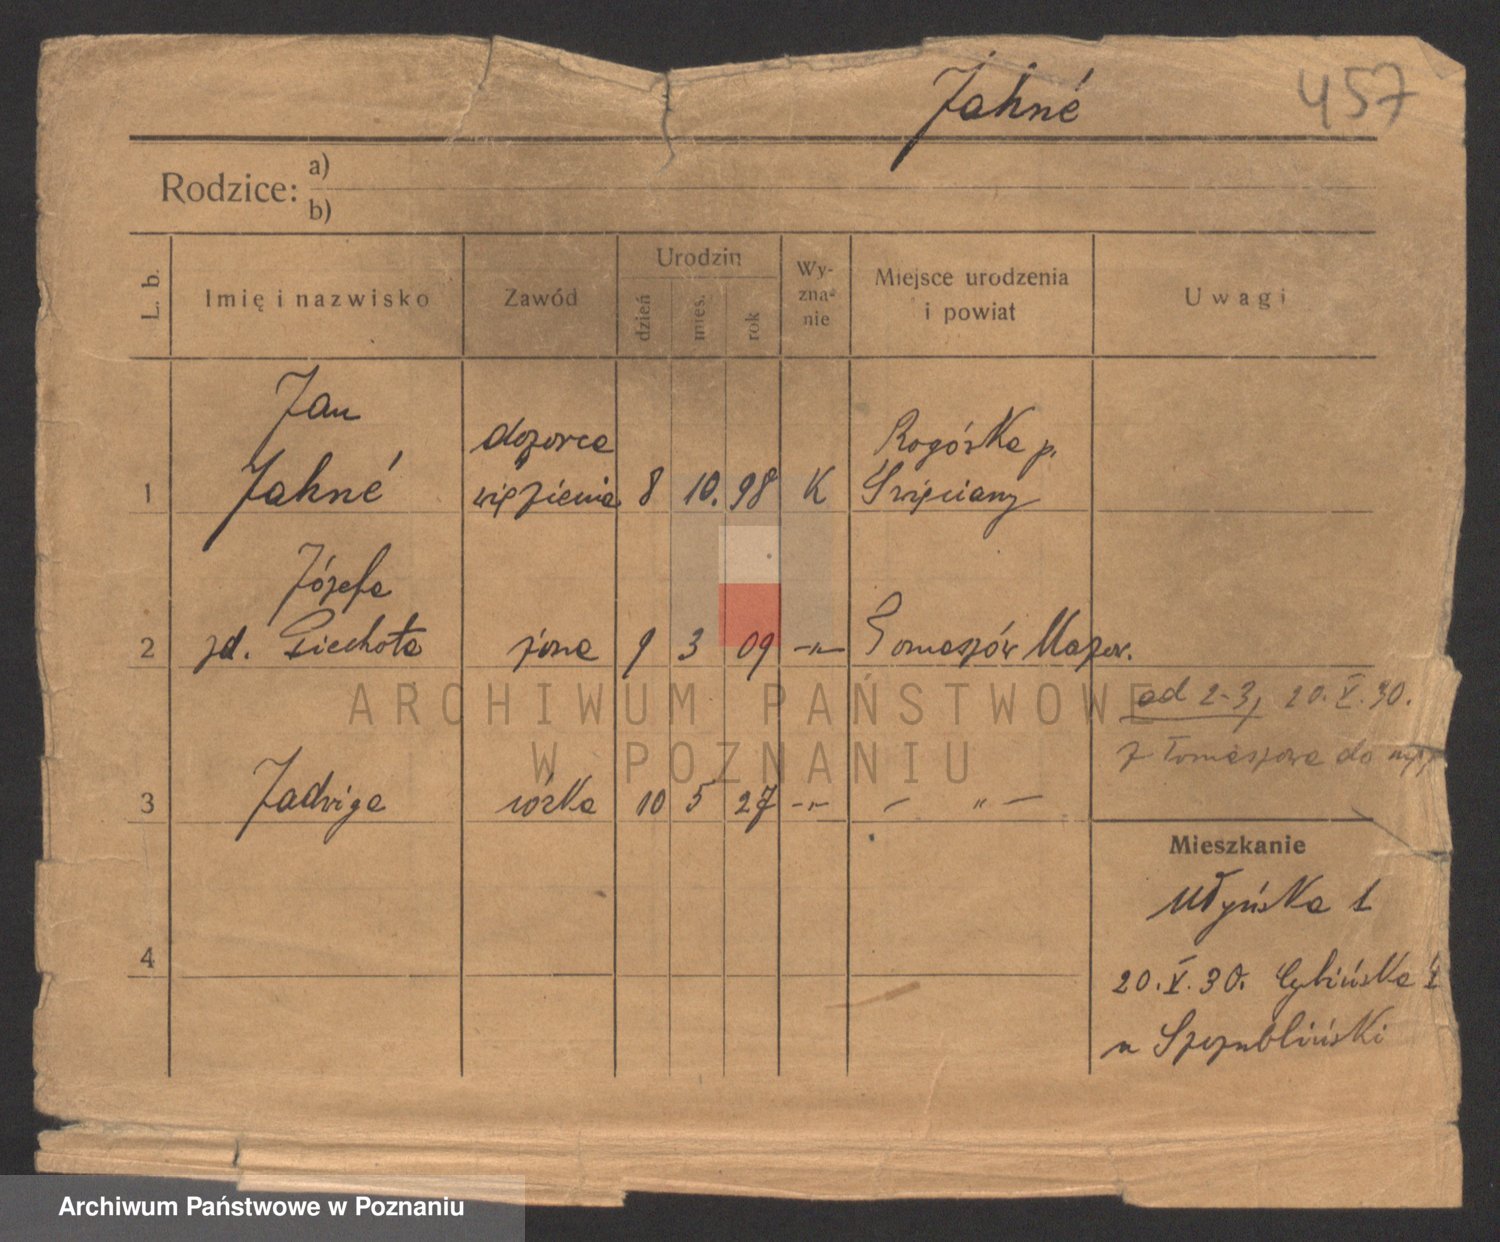 Jahné
457
Rodzice:
a)
b)
L. b.
Imię i nazwisko
Zawód
Urodzin
dzień
mies.
rok
Wy-
zna-
nie
Miejsce urodzenia
i powiat
Uwagi
1
Jan
Jahné
dozorca
więzienia
8 10. 98
K
Rogórka p.
Święciany
2
Józefa
zd. Piechota
żona
9 3 09
-"-
Tomaszów Mazow.
od 2-3, 20.V.30.
z Tomaszowa do
3
Jadwiga
córka
10 5 27
-"-
- " -
4
Mieszkanie
Młyńska 1
20.V.30. Cybińska 1
u Szczublinski
ARCHIWUM PAŃSTWOWE
W POZNANIU
Archiwum Państwowe w Poznaniu